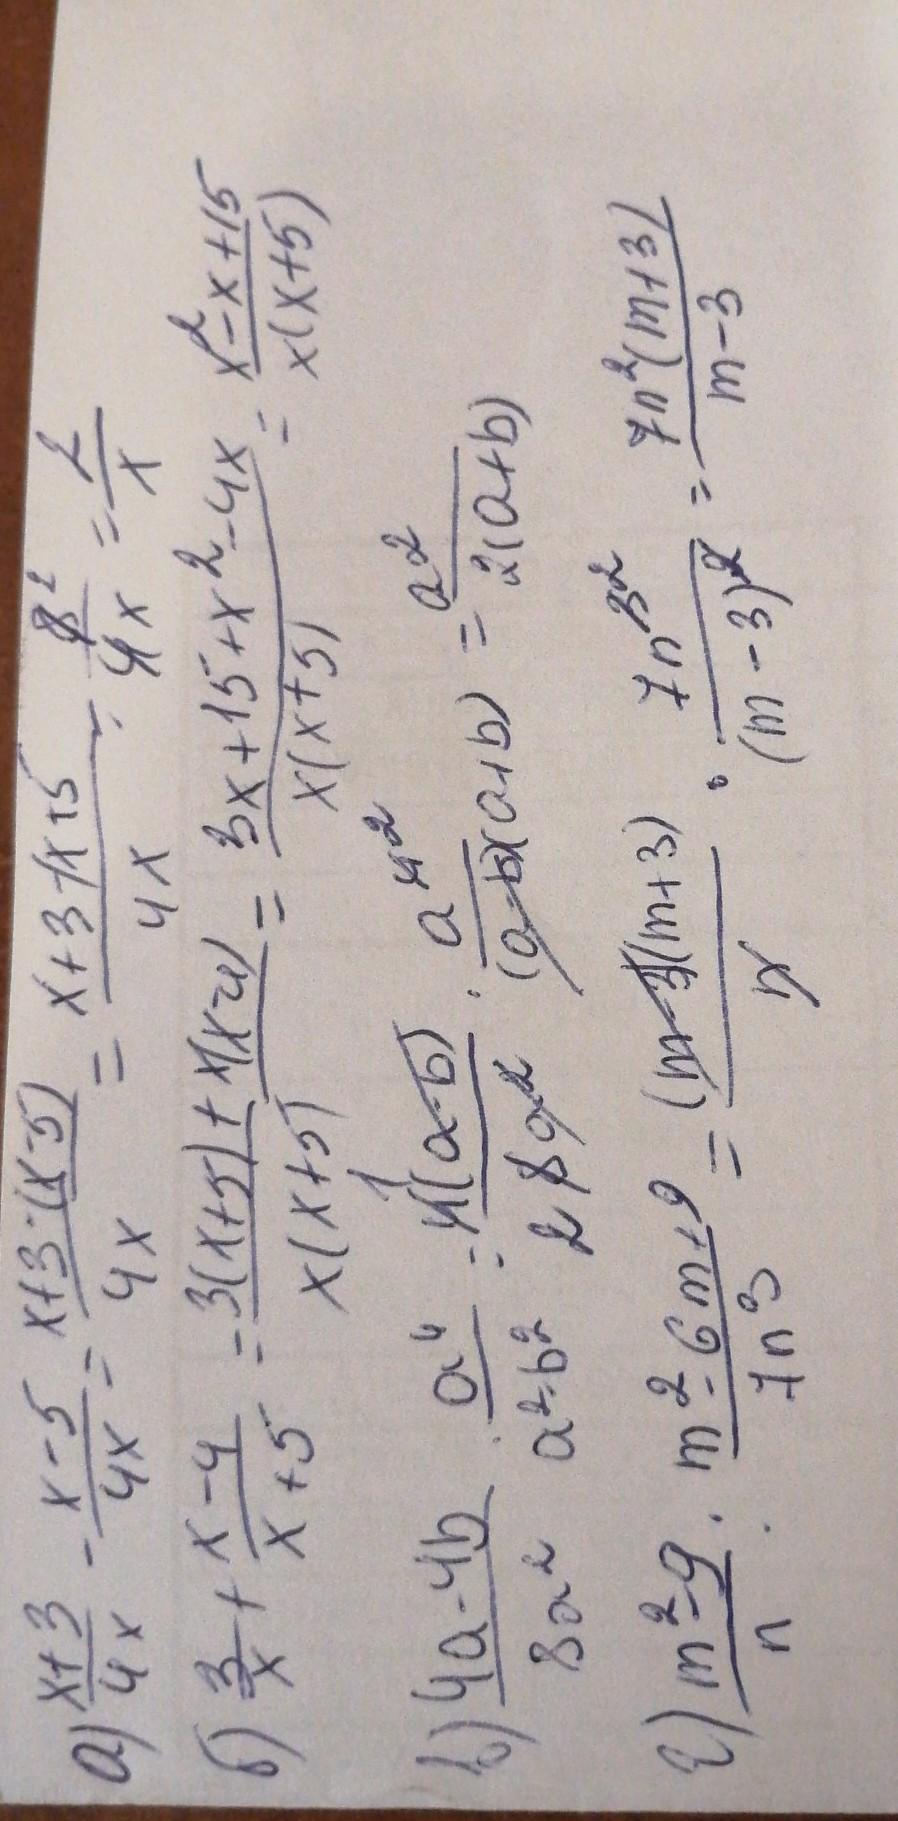 а) x+3/4x - x-5/4x = x+3-(x-5)/4x = x+3-x+5/4x = 8²/4x = 2/x
б) 3/x + x-4/x+5 = 3(x+5)+x(x-4)/x(x+5) = 3x+15+x²-4x/x(x+5) = x²-x+15/x(x+5)
в) 4a-4b/8a² · a⁴/a²-b² = 4(a-b)1/2 8a² · a⁴²/(a-b)(a+b) = a²/2(a+b)
г) m²-9/n : m²-6m+9/7n³ = (m-3)(m+3)/n · 7n³²/(m-3)² = 7n²(m+3)/m-3